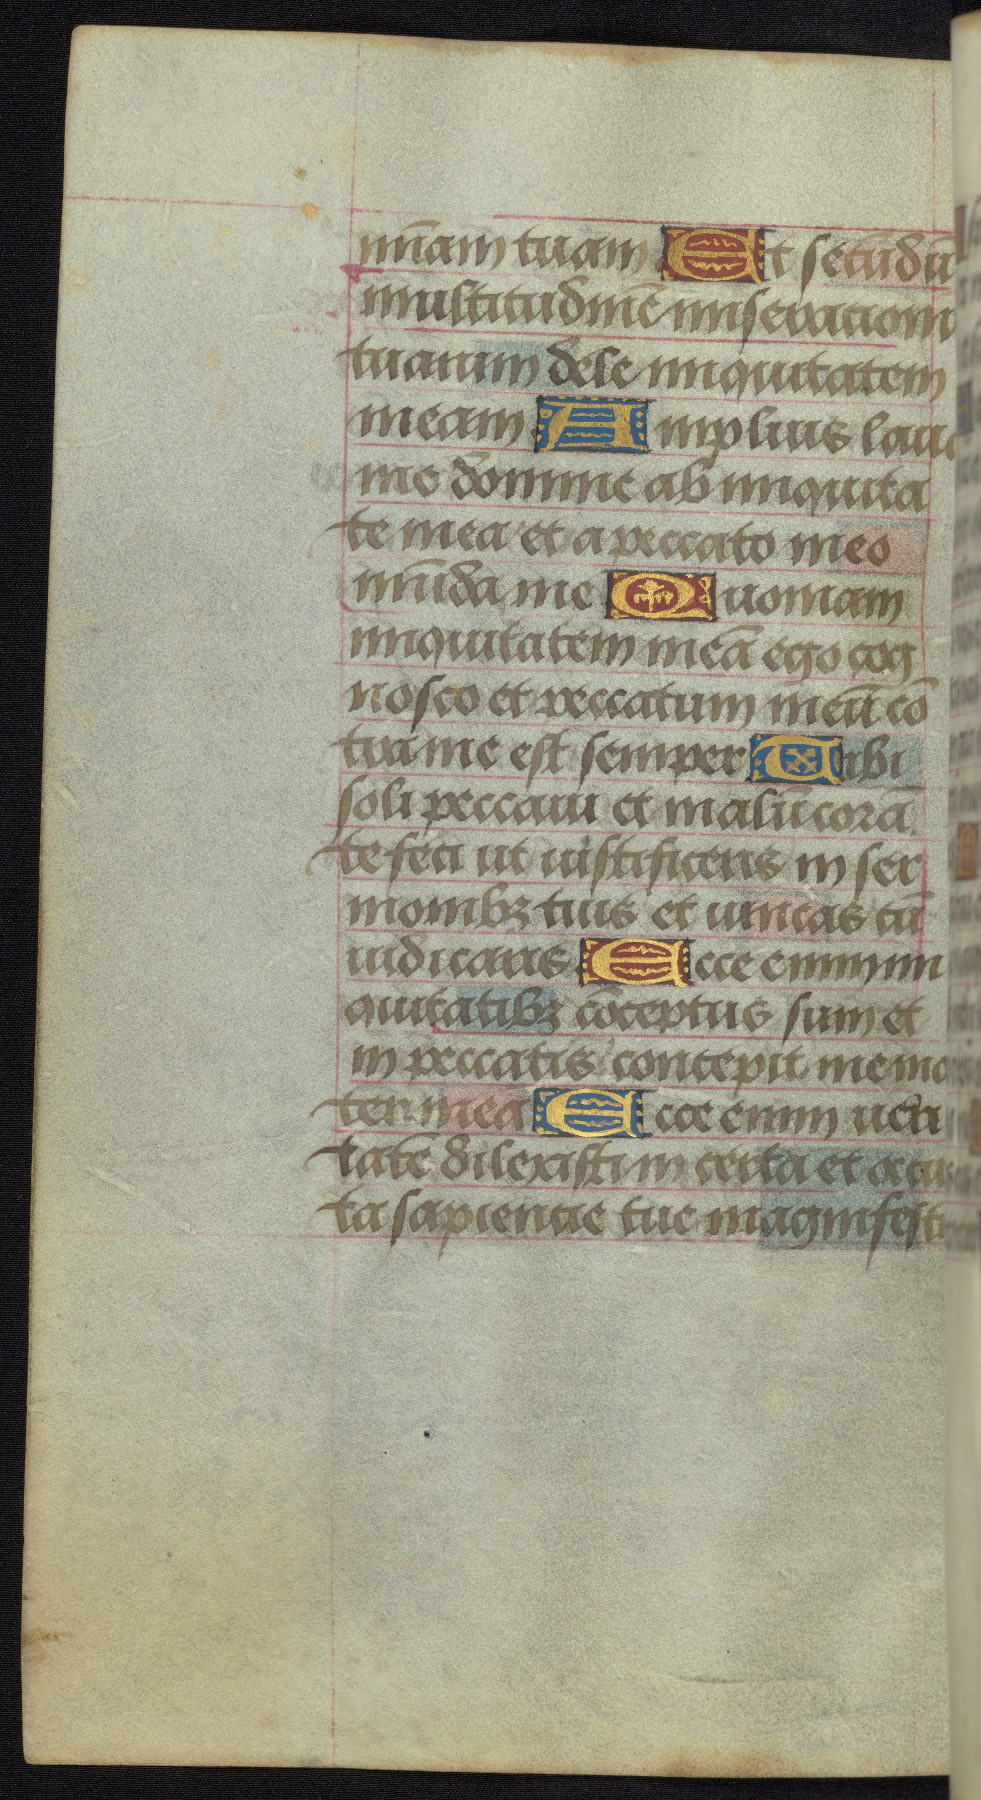 mīam tuam Et secūdū
multitudinē miseracionū
tuarum dele iniquitatem
meam Amplius laua
me domine ab iniquita
te mea et a peccato meo
mūda me Quoniam
iniquitatem meā ego cog
nosco et peccatum meū cō
tra me est semper Tibi
soli peccaui et malū corā
te feci ut iustificeris in ser
monibꝫ tuis et uincas cū
iudicaris Ecce enim in
quitatibꝫ cōceptus sum et
in peccatis concepit me ma
ter mea Ecce enim ueri
tatē dilexisti incerta et occul
ta sapiencie tue magnifesti